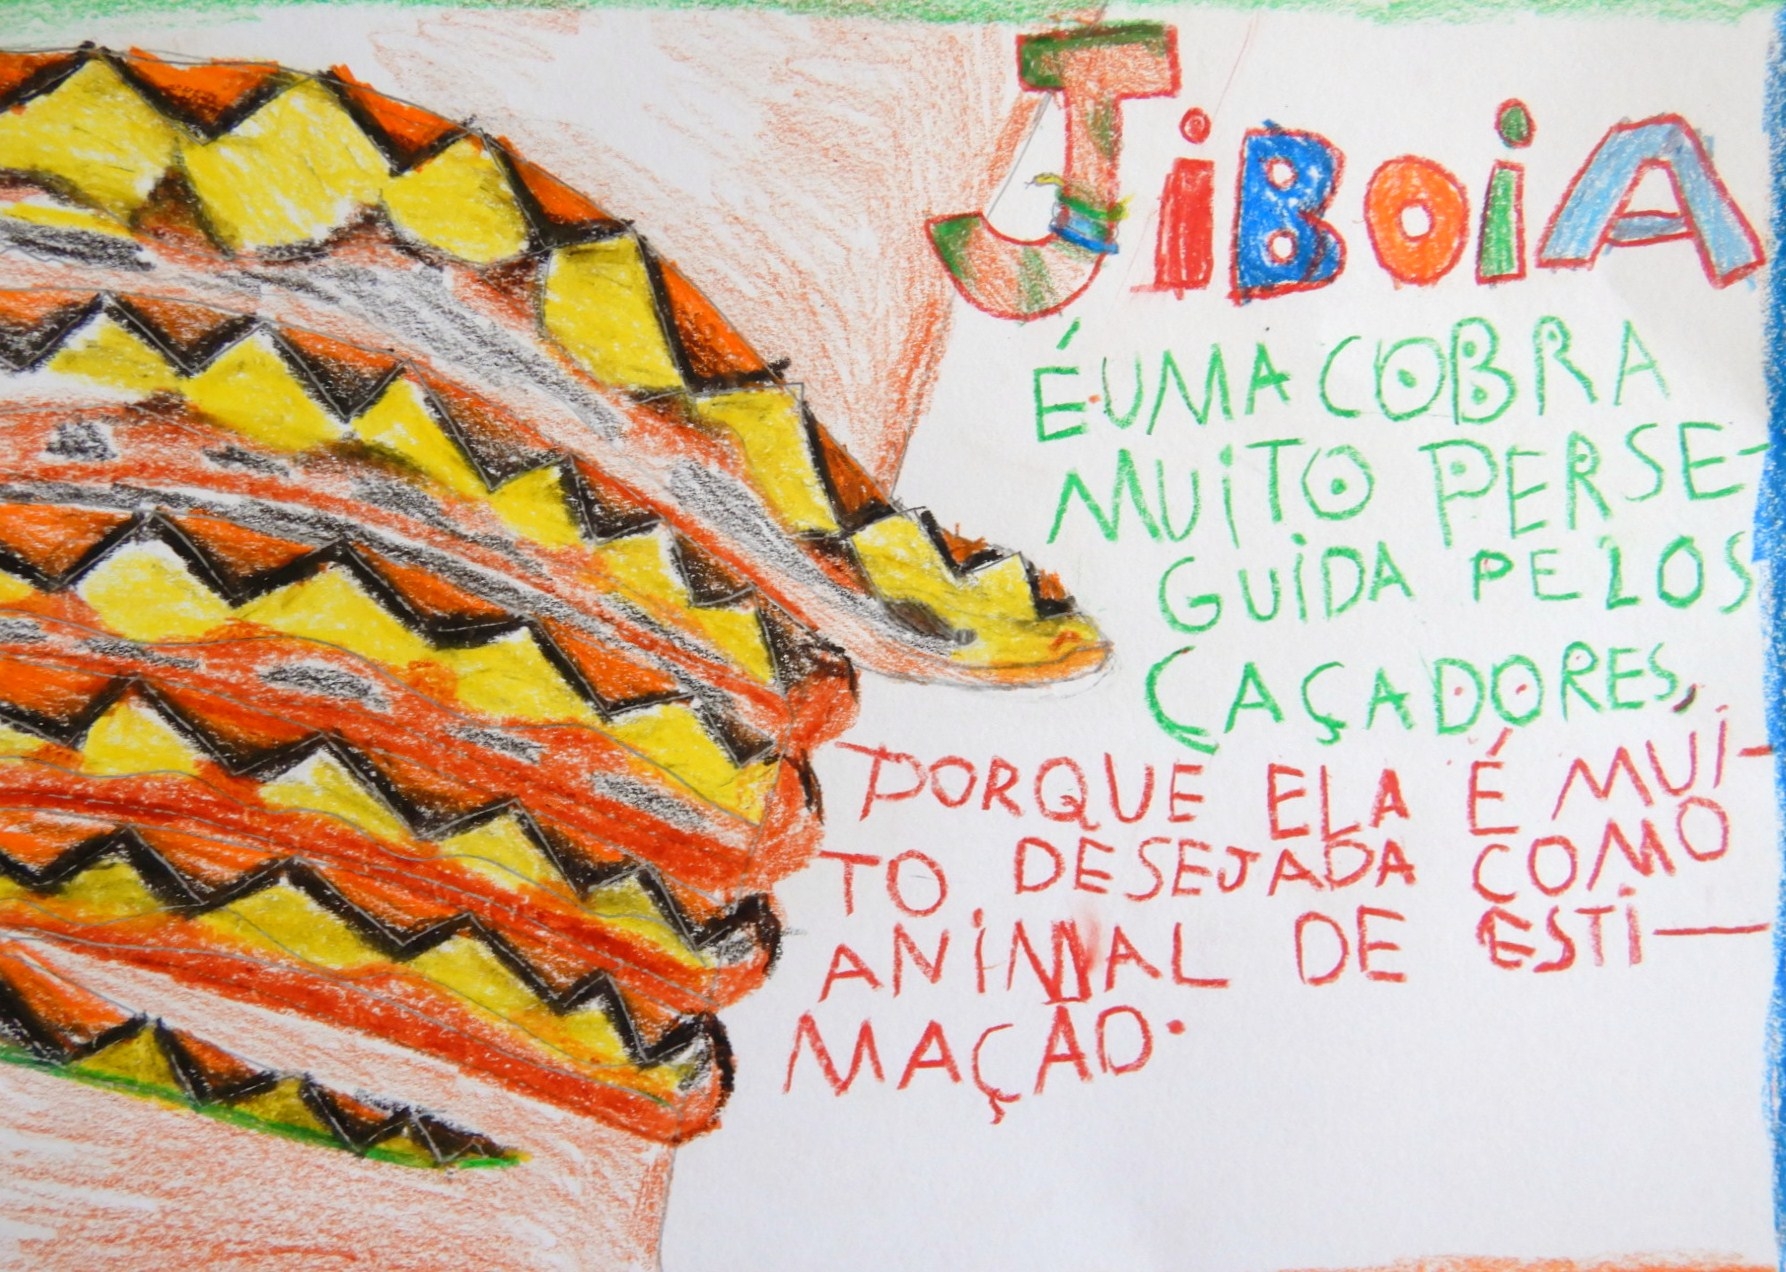 JiBOiA
É UMA COBRA
MUiTO PERSE-
GUiDA PELOS
CAÇADORES,
PORQUE ELA É MUi-
TO DESEJADA COMO
ANiMAL DE ESTi-
MAÇÃO.